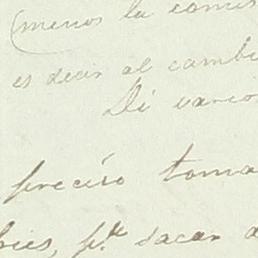 (menos la comis
es decir al cambi
Di varios
preciso toma
bies, p.ª sacar a